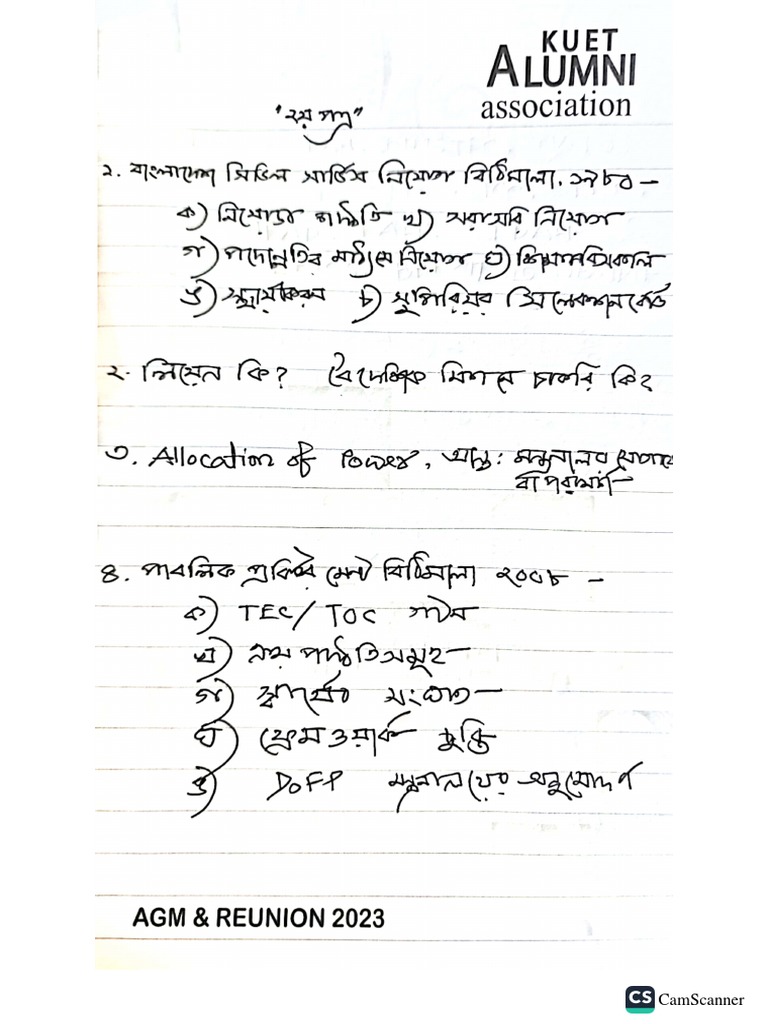 KUET
ALUMNI
association
"২য় পত্র"
১. বাংলাদেশ সিভিল সার্ভিস নিয়োগ বিধিমালা, ১৯৮১ –
ক) নিয়োগের পদ্ধতি খ) সরাসরি নিয়োগ
গ) পদোন্নতির মাধ্যমে নিয়োগ ঘ) শিক্ষানবিসকাল
ঙ) স্থায়ীকরন চ) সুপিরিয়র সিলেকশন বোর্ড
২. লিয়েন কি? বৈদেশিক মিশনে চাকরি কি?
৩. Allocation of Power, আন্ত: মন্ত্রনালয়
বা পরামর্শ
৪. পাবলিক প্রকিউরমেন্ট বিধিমালা ২০০৮ –
ক) TEC/TOC গঠন
খ) ক্রয় পদ্ধতিসমূহ
গ) স্বার্থের সংঘাত
ঘ) ফ্রেমওয়ার্ক চুক্তি
ঙ) DoFP মন্ত্রনালয়ের অনুমোদন
AGM & REUNION 2023
CS CamScanner